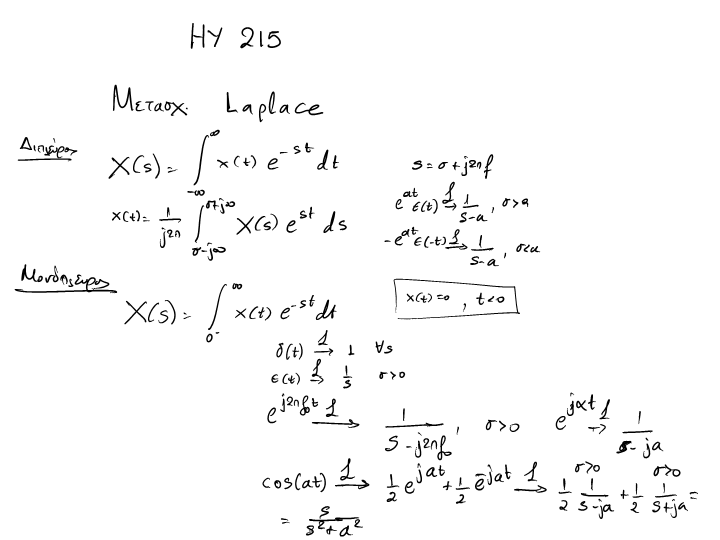 HY 215
Μετασχ. Laplace
Δίπλευρος
X(s) = ∫_{-∞}^{∞} x(t) e^{-st} dt
s = σ + j2πf
x(t) = 1/(j2π) ∫_{σ-j∞}^{σ+j∞} X(s) e^{st} ds
e^{at} ε(t) →^{L} 1/(s-a), σ>a
-e^{at} ε(-t) →^{L} 1/(s-a), σ<a
Μονόπλευρος
X(s) = ∫_{0^-}^{∞} x(t) e^{-st} dt
x(t)=0, t<0
δ(t) →^{L} 1 ∀s
ε(t) →^{L} 1/s σ>0
e^{j2πf₀t} →^{L} 1/(s-j2πf₀), σ>0 e^{jαt} →^{L} 1/(s-ja)
cos(at) →^{L} 1/2 e^{jat} + 1/2 e^{-jat} →^{L} 1/2 1/(s-ja) σ>0 + 1/2 1/(s+ja) σ>0 =
= s/(s²+a²)